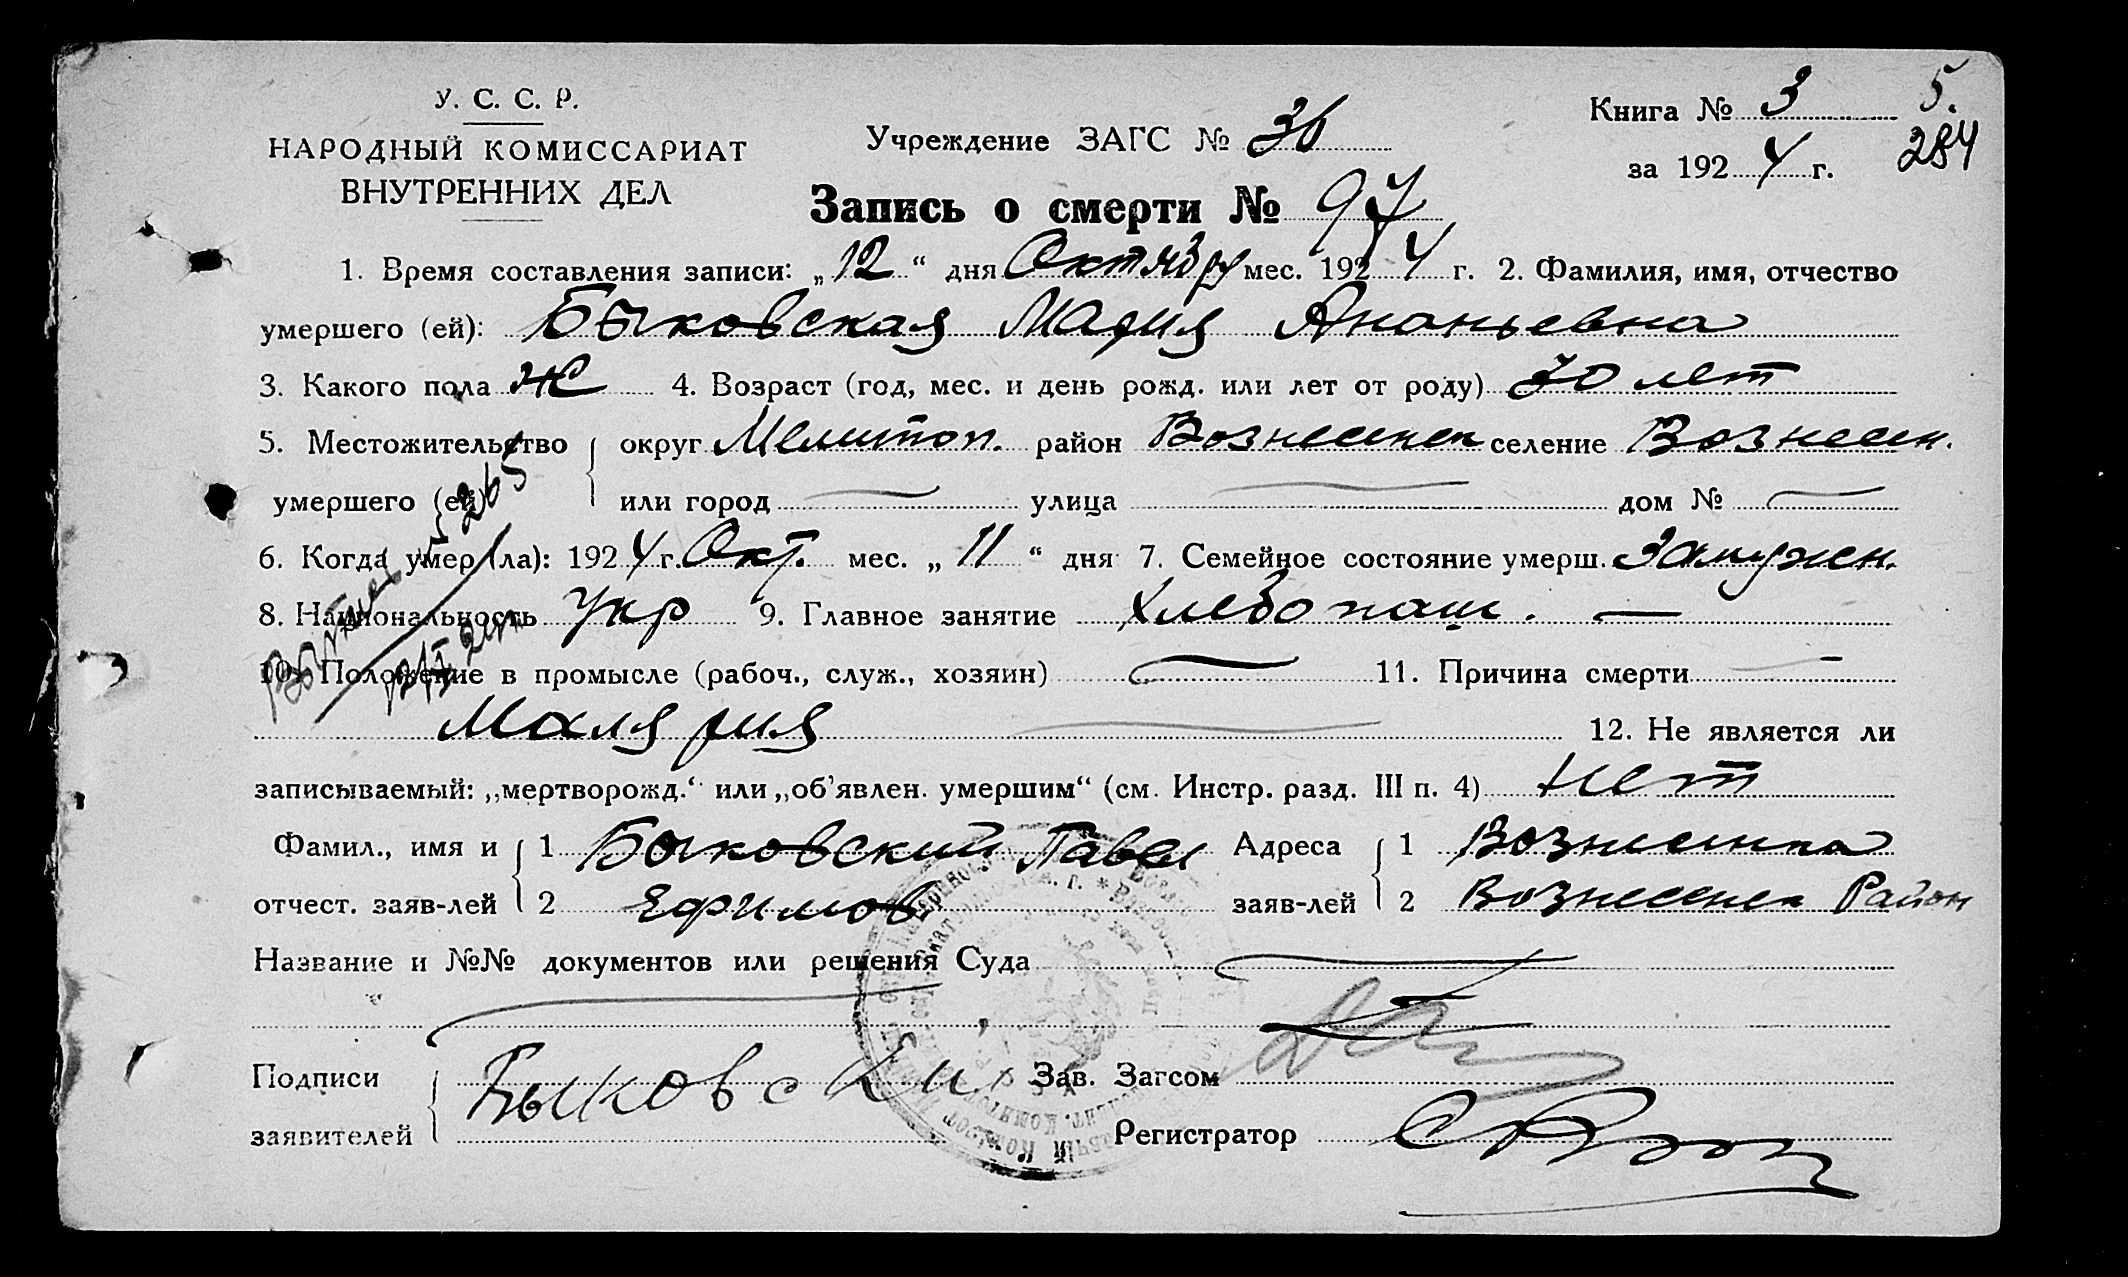 У. С. С. Р.
НАРОДНЫЙ КОМИССАРИАТ
ВНУТРЕННИХ ДЕЛ
Учреждение ЗАГС № 36
Книга № 3
5.
за 1924 г.
284
Запись о смерти № 97
1. Время составления записи: „12“ дня Октября мес. 1924 г. 2. Фамилия, имя, отчество
умершего (ей): Быковская Мария Ананьевна
3. Какого пола ж 4. Возраст (год, мес. и день рожд. или лет от роду) 70 лет
5. Местожительство округ Мелитоп. район Вознесенск селение Вознесен.
умершего (ей) или город — улица — дом № —
6. Когда умер (ла): 1924 г. Окт. мес. „11“ дня 7. Семейное состояние умерш. Замужен.
8. Национальность Укр 9. Главное занятие Хлебопаш. —
10. Положение в промысле (рабоч., служ., хозяин) — 11. Причина смерти —
Малярия — 12. Не является ли
записываемый: „мертворожд.“ или „об’явлен. умершим“ (см. Инстр. разд. III п. 4) Нет
Фамил., имя и 1 Быковский Павел Адреса 1 Вознесенка
отчест. заяв-лей 2 Ефимов. заяв-лей 2 Вознесенск Район
Название и №№ документов или решения Суда —
Подписи Быковски Зав. Загсом
заявителей Регистратор
№ 265